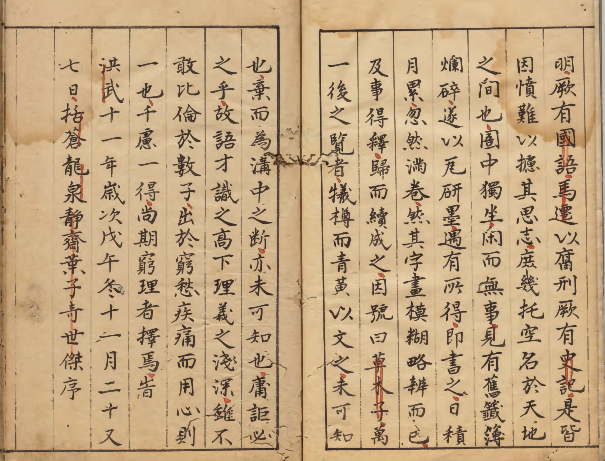 明厥有國語馬遷以腐刑厥有史記是皆
因憤難以攄其思志庶幾托空名於天地
之間也圄中獨坐閑而無事見有舊籤簿
爛碎遂以瓦研墨遇有所得即書之日積
月累忽然滿卷然其字畫模糊略辨而已
及事得釋歸而續成之因號曰草木子萬
一後之覽者犧樽而青黃以文之未可知
也棄而為溝中之斷亦未可知也庸詎必
之乎故語才識之高下理義之淺深雖不
敢比倫於數子出於窮愁疾痛而用心則
一也千慮一得尚期窮理者擇焉峕
洪武十一年歲次戊午冬十一月二十又
七日括蒼龍泉靜齋葉子竒世傑序